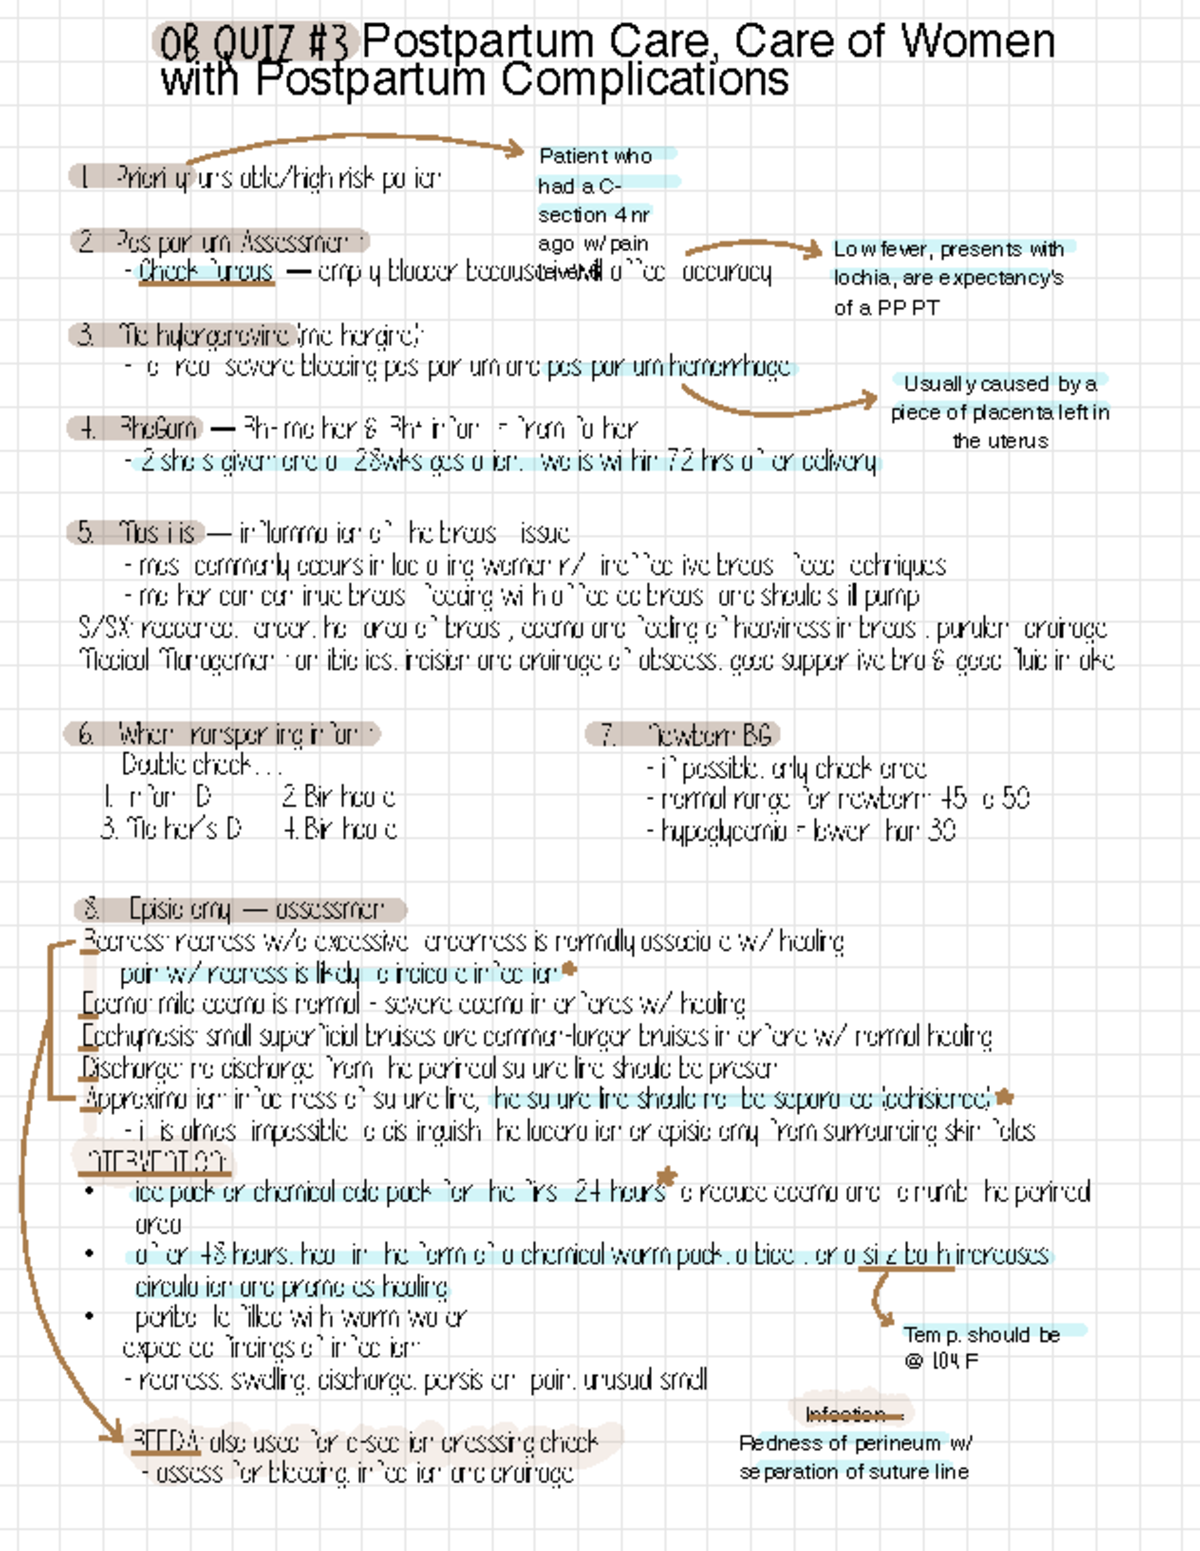 OB QUIZ #3 Postpartum Care, Care of Women
with Postpartum Complications
1. Priority unstable/high risk patient
Patient who
had a C-
section 4 hr
ago w/ pain
2. Postpartum Assessment:
- Check fundus — empty bladder because it will affect accuracy
Low fever, presents with
lochia, are expectancy's
of a PP PT
3. Methylergonovine (methergine):
- to treat severe bleeding postpartum and postpartum hemorrhage
Usually caused by a
piece of placenta left in
the uterus
4. RhoGam — Rh- mother & Rh+ infant = from father
- 2 shots given: one at 28wks gestation, two is within 72 hrs after delivery
5. Mastitis — inflammation of the breast tissue
- most commonly occurs in lactating women r/t ineffective breast feed techniques
- mother can continue breast feeding with affected breast and should still pump
S/SX: reddened, tender, hot area of breast, edema and feeling of heaviness in breast, purulent drainage
Medical Management: antibiotics, incision and drainage of abscess, good supportive bra & good fluid intake
6. When transporting infant:
Double check...
1. Infant ID 2. Birthdate
3. Mother's ID 4. Birthdate
7. Newborn BG
- if possible, only check once
- normal range for newborn: 45 to 50
- hypoglycemia = lower than 30
8. Episiotomy — assessment
Redness: redness w/o excessive tenderness is normally associate w/ healing
pain w/ redness is likely to indicate infection
Edema: mild edema is normal - severe edema interferes w/ healing
Ecchymosis: small superficial bruises are common-larger bruises interfere w/ normal healing
Discharge: no discharge from the perineal suture line should be present
Approximation: intactness of suture line, the suture line should not be separated (dehisience)
- it is almost impossible to distinguish the laceration or episiotomy from surrounding skin folds
INTERVENTION:
• ice pack or chemical cold pack for the first 24 hours to reduce edema and to numb the perineal
area
• after 48 hours, heat in the form of a chemical warm pack, a bidet, or a sitz bath increases
circulation and promotes healing
• peribottle filled with warm water
expected findings of infection:
- redness, swelling, discharge, persistent pain, unusual smell
Temp. should be
@ 104 F
Infection
Redness of perineum w/
separation of suture line
REEDA: also used for c-section dresssing check
- assess for bleeding, infection and drainage